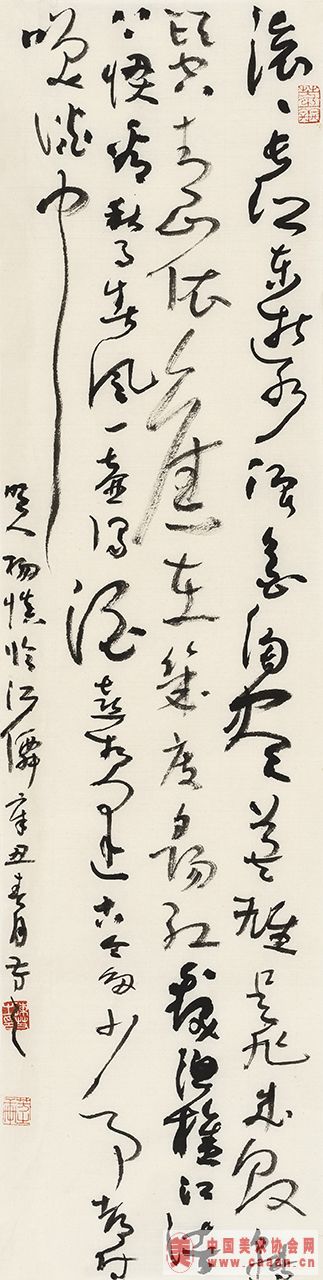 滚〻长江東逝水浪花淘尽英雄是非成败转
头空青山依舊在幾度夕陽红白髮渔樵江渚
上惯看秋月春風一壶濁酒喜相逢古今多少事都付
笑谈中
明人楊慎临江僊 辛丑春月
中国美术协会网
www.caaan.cn